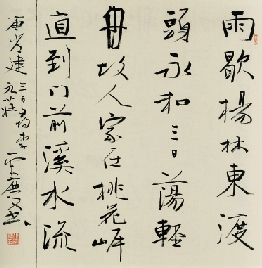 雨歇楊林東渡
頭永和三日蕩輕
舟故人家在桃花岸
直到門前溪水流
常建三日尋李九莊